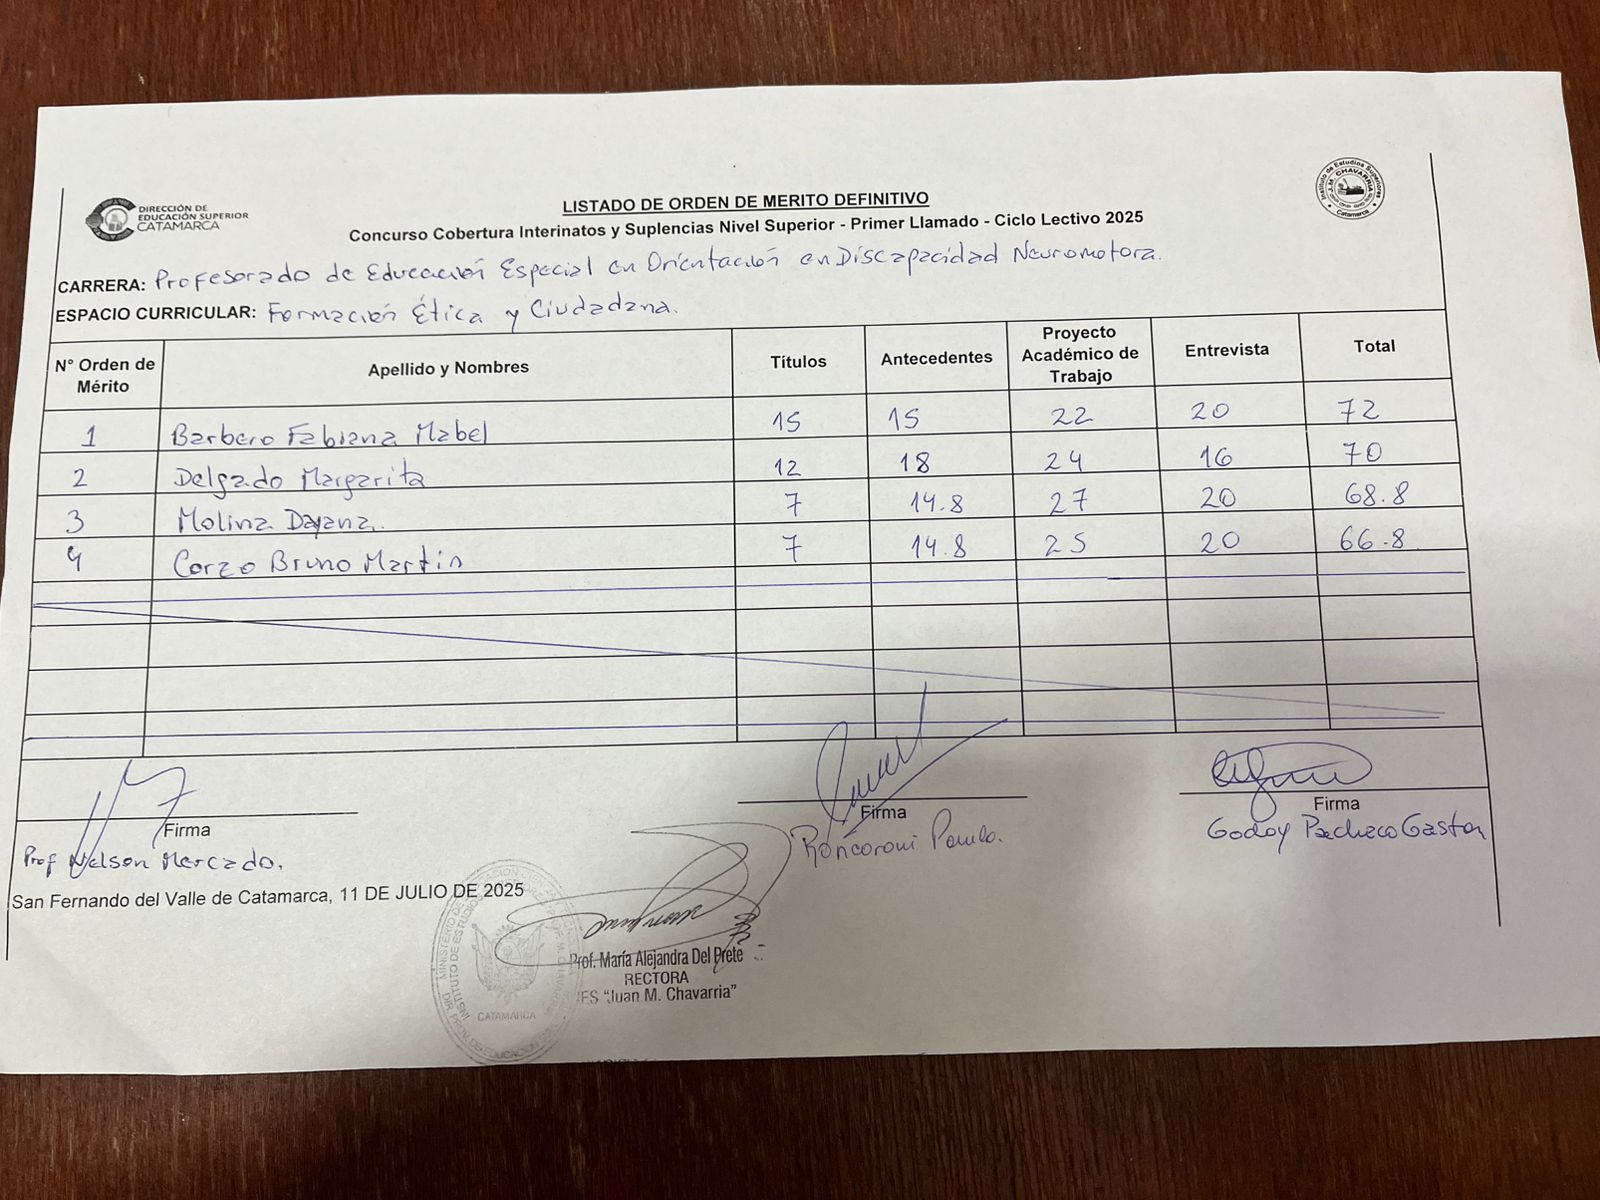 DIRECCIÓN DE
EDUCACIÓN SUPERIOR
CATAMARCA
LISTADO DE ORDEN DE MERITO DEFINITIVO
Concurso Cobertura Interinatos y Suplencias Nivel Superior - Primer Llamado - Ciclo Lectivo 2025
Instituto de Estudios Superiores
J.M. CHAVARRIA
Catamarca
CARRERA: Profesorado de Educación Especial en Orientación en Discapacidad Neuromotora.
ESPACIO CURRICULAR: Formación Ética y Ciudadana.
N° Orden de Mérito Apellido y Nombres Títulos Antecedentes Proyecto Académico de Trabajo Entrevista Total
1 Barbero Fabiana Mabel 15 15 22 20 72
2 Delgado Margarita 12 18 24 16 70
3 Molina Dayana. 7 14.8 27 20 68.8
4 Corzo Bruno Martin 7 14.8 25 20 66.8
Firma Firma Firma
Prof Nelson Mercado. Roncoroni Paula. Godoy Pacheco Gaston
San Fernando del Valle de Catamarca, 11 DE JULIO DE 2025
Prof. María Alejandra Del Prete
RECTORA
IES "Juan M. Chavarria"
CATAMARCA